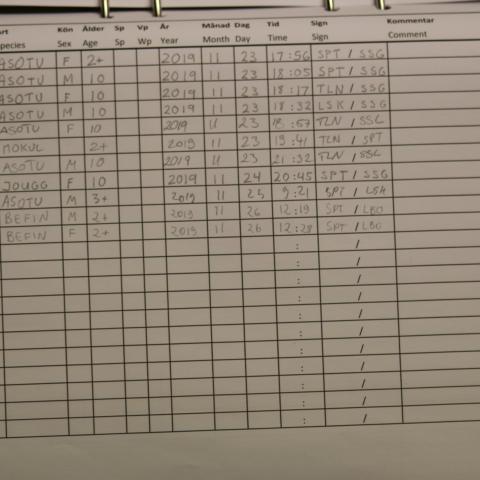 Art Kön Ålder Sp Vp År Månad Dag Tid Sign Kommentar
Species Sex Age Sp Wp Year Month Day Time Sign Comment
ASOTU F 2+ 2019 11 23 17:56 SPT / SSG
ASOTU M 10 2019 11 23 18:05 SPT / SSG
ASOTU F 10 2019 11 23 18:17 TLN / SSG
ASOTU M 10 2019 11 23 18:32 LSK / SSG
ASOTU F 10 2019 11 23 18:57 TLN / SSG
MOKUL 2+ 2019 11 23 19:41 TLN / SPT
ASOTU M 10 2019 11 23 21:32 TLN / SSG
JOUGG F 10 2019 11 24 20:45 SPT / SSG
ASOTU M 3+ 2019 11 25 9:21 SPT /
BEFIN M 2+ 2019 11 26 12:19 SPT / LBO
BEFIN F 2+ 2019 11 26 12:28 SPT / LBO
: /
: /
: /
: /
: /
: /
: /
: /
: /
: /